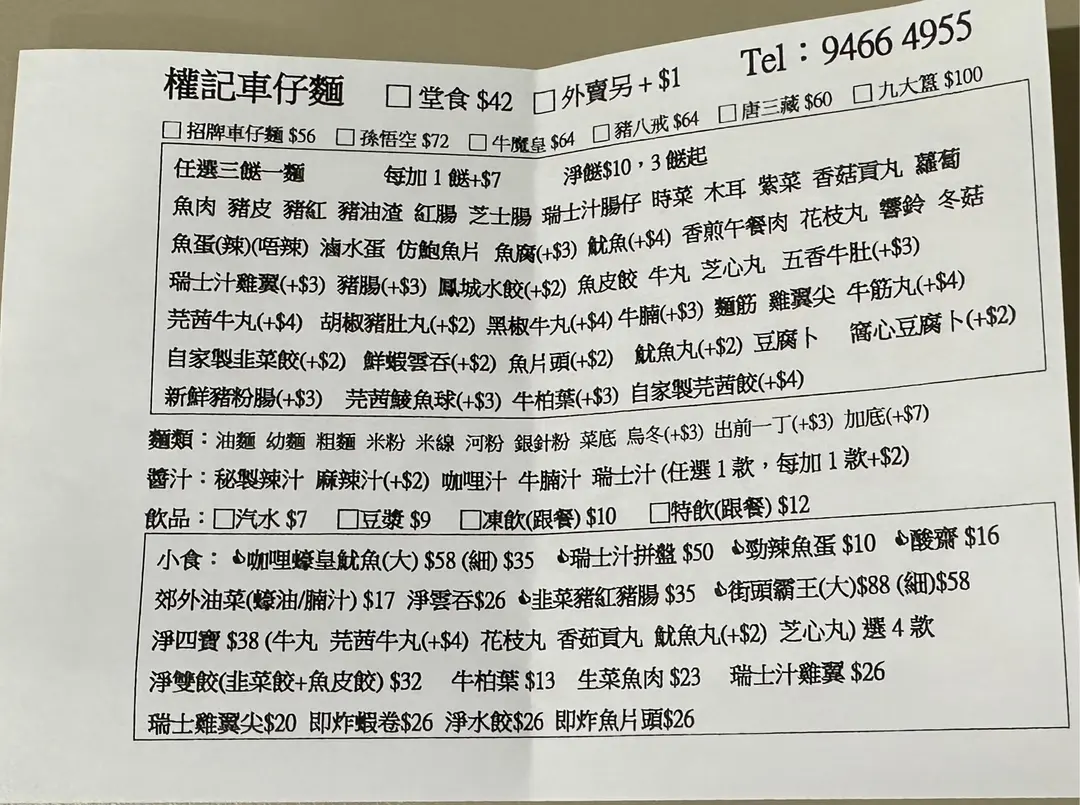 權記車仔麵 □ 堂食 $42 □ 外賣另 + $1 Tel：9466 4955
□ 招牌車仔麵 $56 □ 孫悟空 $72 □ 牛魔皇 $64 □ 豬八戒 $64 □ 唐三藏 $60 □ 九大簋 $100
任選三餸一麵 每加 1 餸+$7 淨餸$10，3 餸起
魚肉 豬皮 豬紅 豬油渣 紅腸 芝士腸 瑞士汁腸仔 時菜 木耳 紫菜 香菇貢丸 蘿蔔
魚蛋(辣)(唔辣) 滷水蛋 仿鮑魚片 魚腐(+$3) 魷魚(+$4) 香煎午餐肉 花枝丸 響鈴 冬菇
瑞士汁雞翼(+$3) 豬腸(+$3) 鳳城水餃(+$2) 魚皮餃 牛丸 芝心丸 五香牛肚(+$3)
芫茜牛丸(+$4) 胡椒豬肚丸(+$2) 黑椒牛丸(+$4) 牛腩(+$3) 麵筋 雞翼尖 牛筋丸(+$4)
自家製韭菜餃(+$2) 鮮蝦雲吞(+$2) 魚片頭(+$2) 魷魚丸(+$2) 豆腐卜 窩心豆腐卜(+$2)
新鮮豬粉腸(+$3) 芫茜鯪魚球(+$3) 牛柏葉(+$3) 自家製芫茜餃(+$4)
麵類：油麵 幼麵 粗麵 米粉 米線 河粉 銀針粉 菜底 烏冬(+$3) 出前一丁(+$3) 加底(+$7)
醬汁：秘製辣汁 麻辣汁(+$2) 咖哩汁 牛腩汁 瑞士汁 (任選 1 款，每加 1 款+$2)
飲品：□汽水 $7 □豆漿 $9 □凍飲(跟餐) $10 □特飲(跟餐) $12
小食： 👍咖哩蠔皇魷魚(大) $58 (細) $35 👍瑞士汁拼盤 $50 👍勁辣魚蛋 $10 👍酸齋 $16
郊外油菜(蠔油/腩汁) $17 淨雲吞$26 👍韭菜豬紅豬腸 $35 👍街頭霸王(大)$88 (細)$58
淨四寶 $38 (牛丸 芫茜牛丸(+$4) 花枝丸 香茹貢丸 魷魚丸(+$2) 芝心丸) 選 4 款
淨雙餃(韭菜餃+魚皮餃) $32 牛柏葉 $13 生菜魚肉 $23 瑞士汁雞翼 $26
瑞士雞翼尖$20 即炸蝦卷$26 淨水餃$26 即炸魚片頭$26